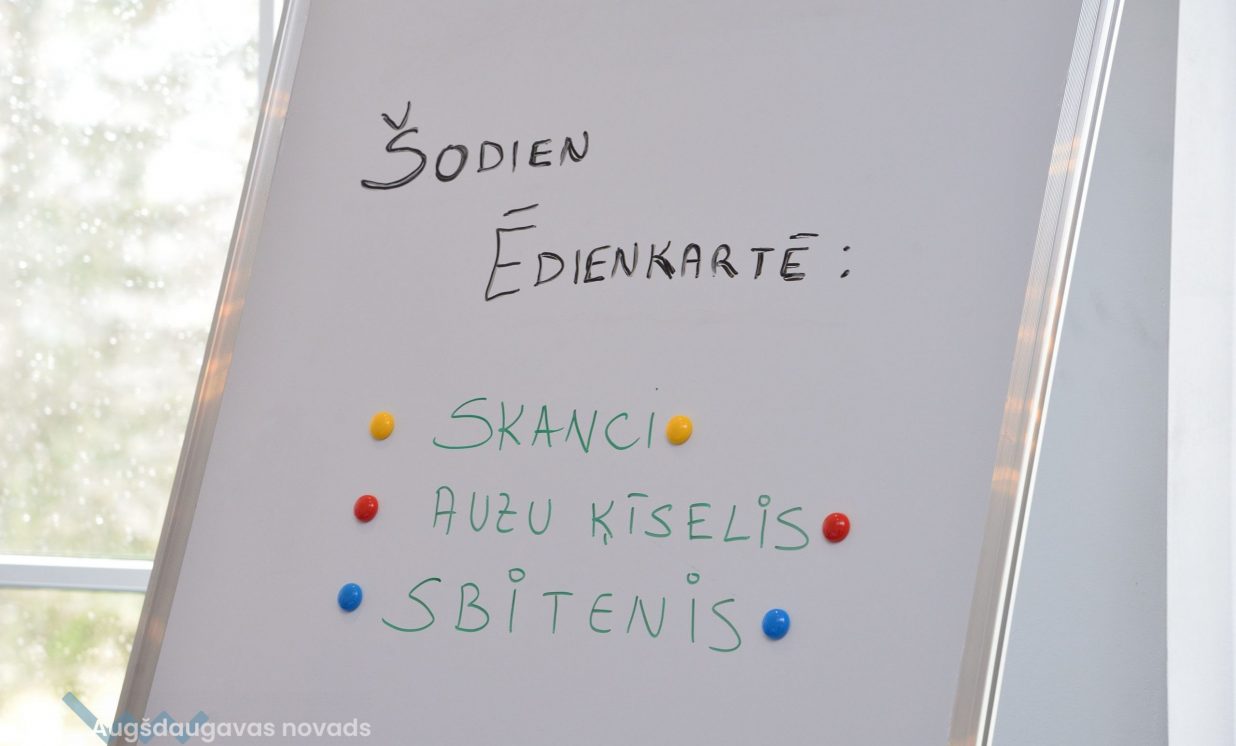 ŠODIEN
ĒDIENKARTĒ:
SKANCI
AUZU ĶĪSELIS
SBITENIS
Augšdaugavas novads